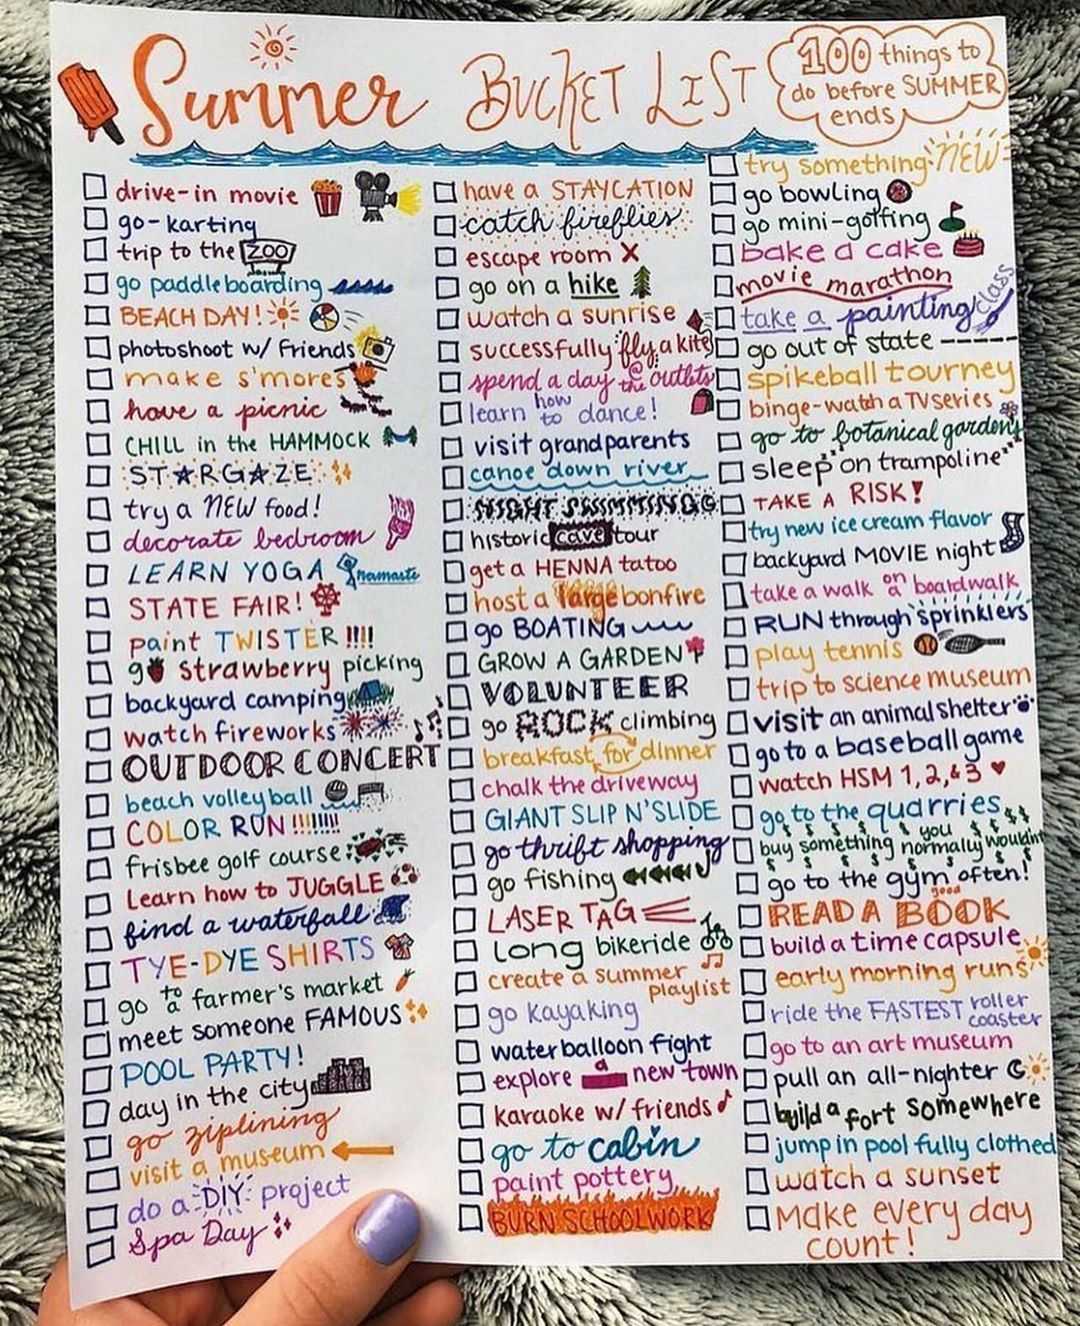 Summer BUCKET LIST
100 things to
do before SUMMER
ends
drive-in movie
go-karting
trip to the ZOO
go paddleboarding
BEACH DAY!
photoshoot w/ friends
make s'mores
have a picnic
CHILL in the HAMMOCK
STARGAZE
try a NEW food!
decorate bedroom
LEARN YOGA namaste
STATE FAIR!
paint TWISTER !!!!
go strawberry picking
backyard camping
watch fireworks
OUTDOOR CONCERT
beach volleyball
COLOR RUN!!!!!!!!
frisbee golf course
Learn how to JUGGLE
find a waterfall
TYE-DYE SHIRTS
go to a farmer's market
meet someone FAMOUS
POOL PARTY!
day in the city
go ziplining
visit a museum
do a DIY project
Spa Day
have a STAYCATION
catch fireflies
escape room X
go on a hike
watch a sunrise
successfully fly a kite
spend a day @ the outlets
learn how to dance!
visit grandparents
canoe down river
NIGHT SWIMMING
historic cave tour
get a HENNA tatoo
host a large bonfire
go BOATING
GROW A GARDEN
VOLUNTEER
go ROCK climbing
breakfast for dinner
chalk the driveway
GIANT SLIP N'SLIDE
go thrift shopping
go fishing
LASER TAG
long bikeride
create a summer
playlist
go kayaking
water balloon fight
explore a new town
karaoke w/ friends
go to cabin
paint pottery
BURN SCHOOLWORK
try something NEW
go bowling
go mini-golfing
bake a cake
movie marathon
take a painting class
go out of state -----
spikeball tourney
binge-watch a TV series
go to botanical gardens
sleep on trampoline
TAKE A RISK!
try new ice cream flavor
backyard MOVIE night
take a walk on a boardwalk
RUN through sprinklers
play tennis
trip to science museum
visit an animal shelter
go to a baseball game
watch HSM 1, 2, & 3 ♥
go to the quarries
buy something you normally wouldn't
go to the gym often!
READ A good BOOK
build a time capsule
early morning runs
ride the FASTEST roller
coaster
go to an art museum
pull an all-nighter
build a fort somewhere
jump in pool fully clothed
watch a sunset
Make every day
count!